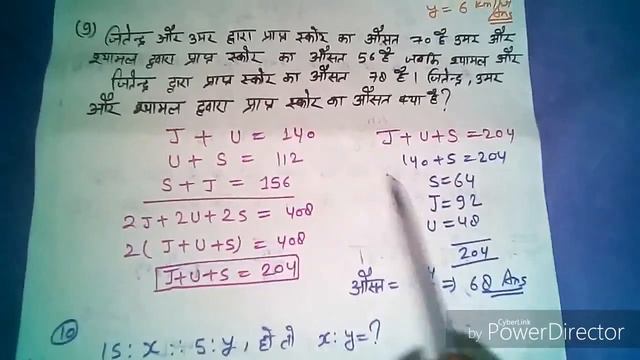 y = 6 km/
Ans
(9) जितेन्द्र और उमर द्वारा प्राप्त स्कोर का औसत 70 है उमर और
श्यामल द्वारा प्राप्त स्कोर का औसत 56 है जबकि श्यामल और
जितेन्द्र द्वारा प्राप्त स्कोर का औसत 78 है। जितेन्द्र, उमर
और श्यामल द्वारा प्राप्त स्कोर का औसत क्या है?
J + U = 140
U + S = 112
S + J = 156
2J + 2U + 2S = 408
2 ( J+U+S) = 408
J+U+S = 204
J+U+S = 204
140+S = 204
S = 64
J = 92
U = 48
204
औसत = ⇒ 68 Ans
(10) 15 : x :: 5 : y, हो तो x : y = ?
CyberLink
by PowerDirector